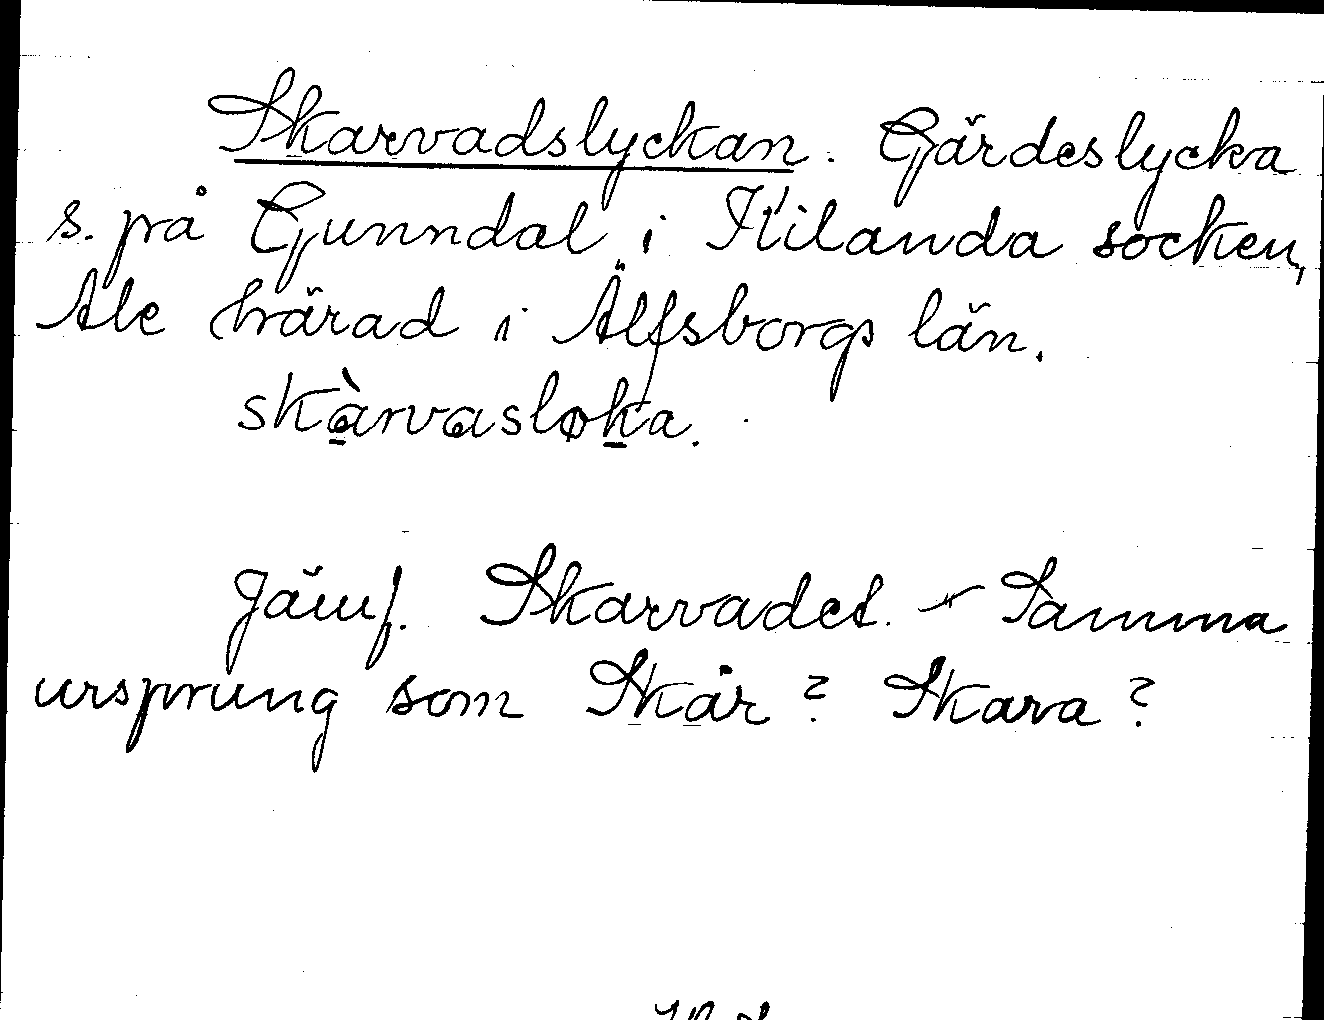 Skarvadslyckan. Gärdeslycka
s. på Gunndal i Kilanda socken,
Ale härad i Älfsborgs län.
skàrvasløka.
Jämf. Skarvadet. – Samma
ursprung som Skår? Skara?